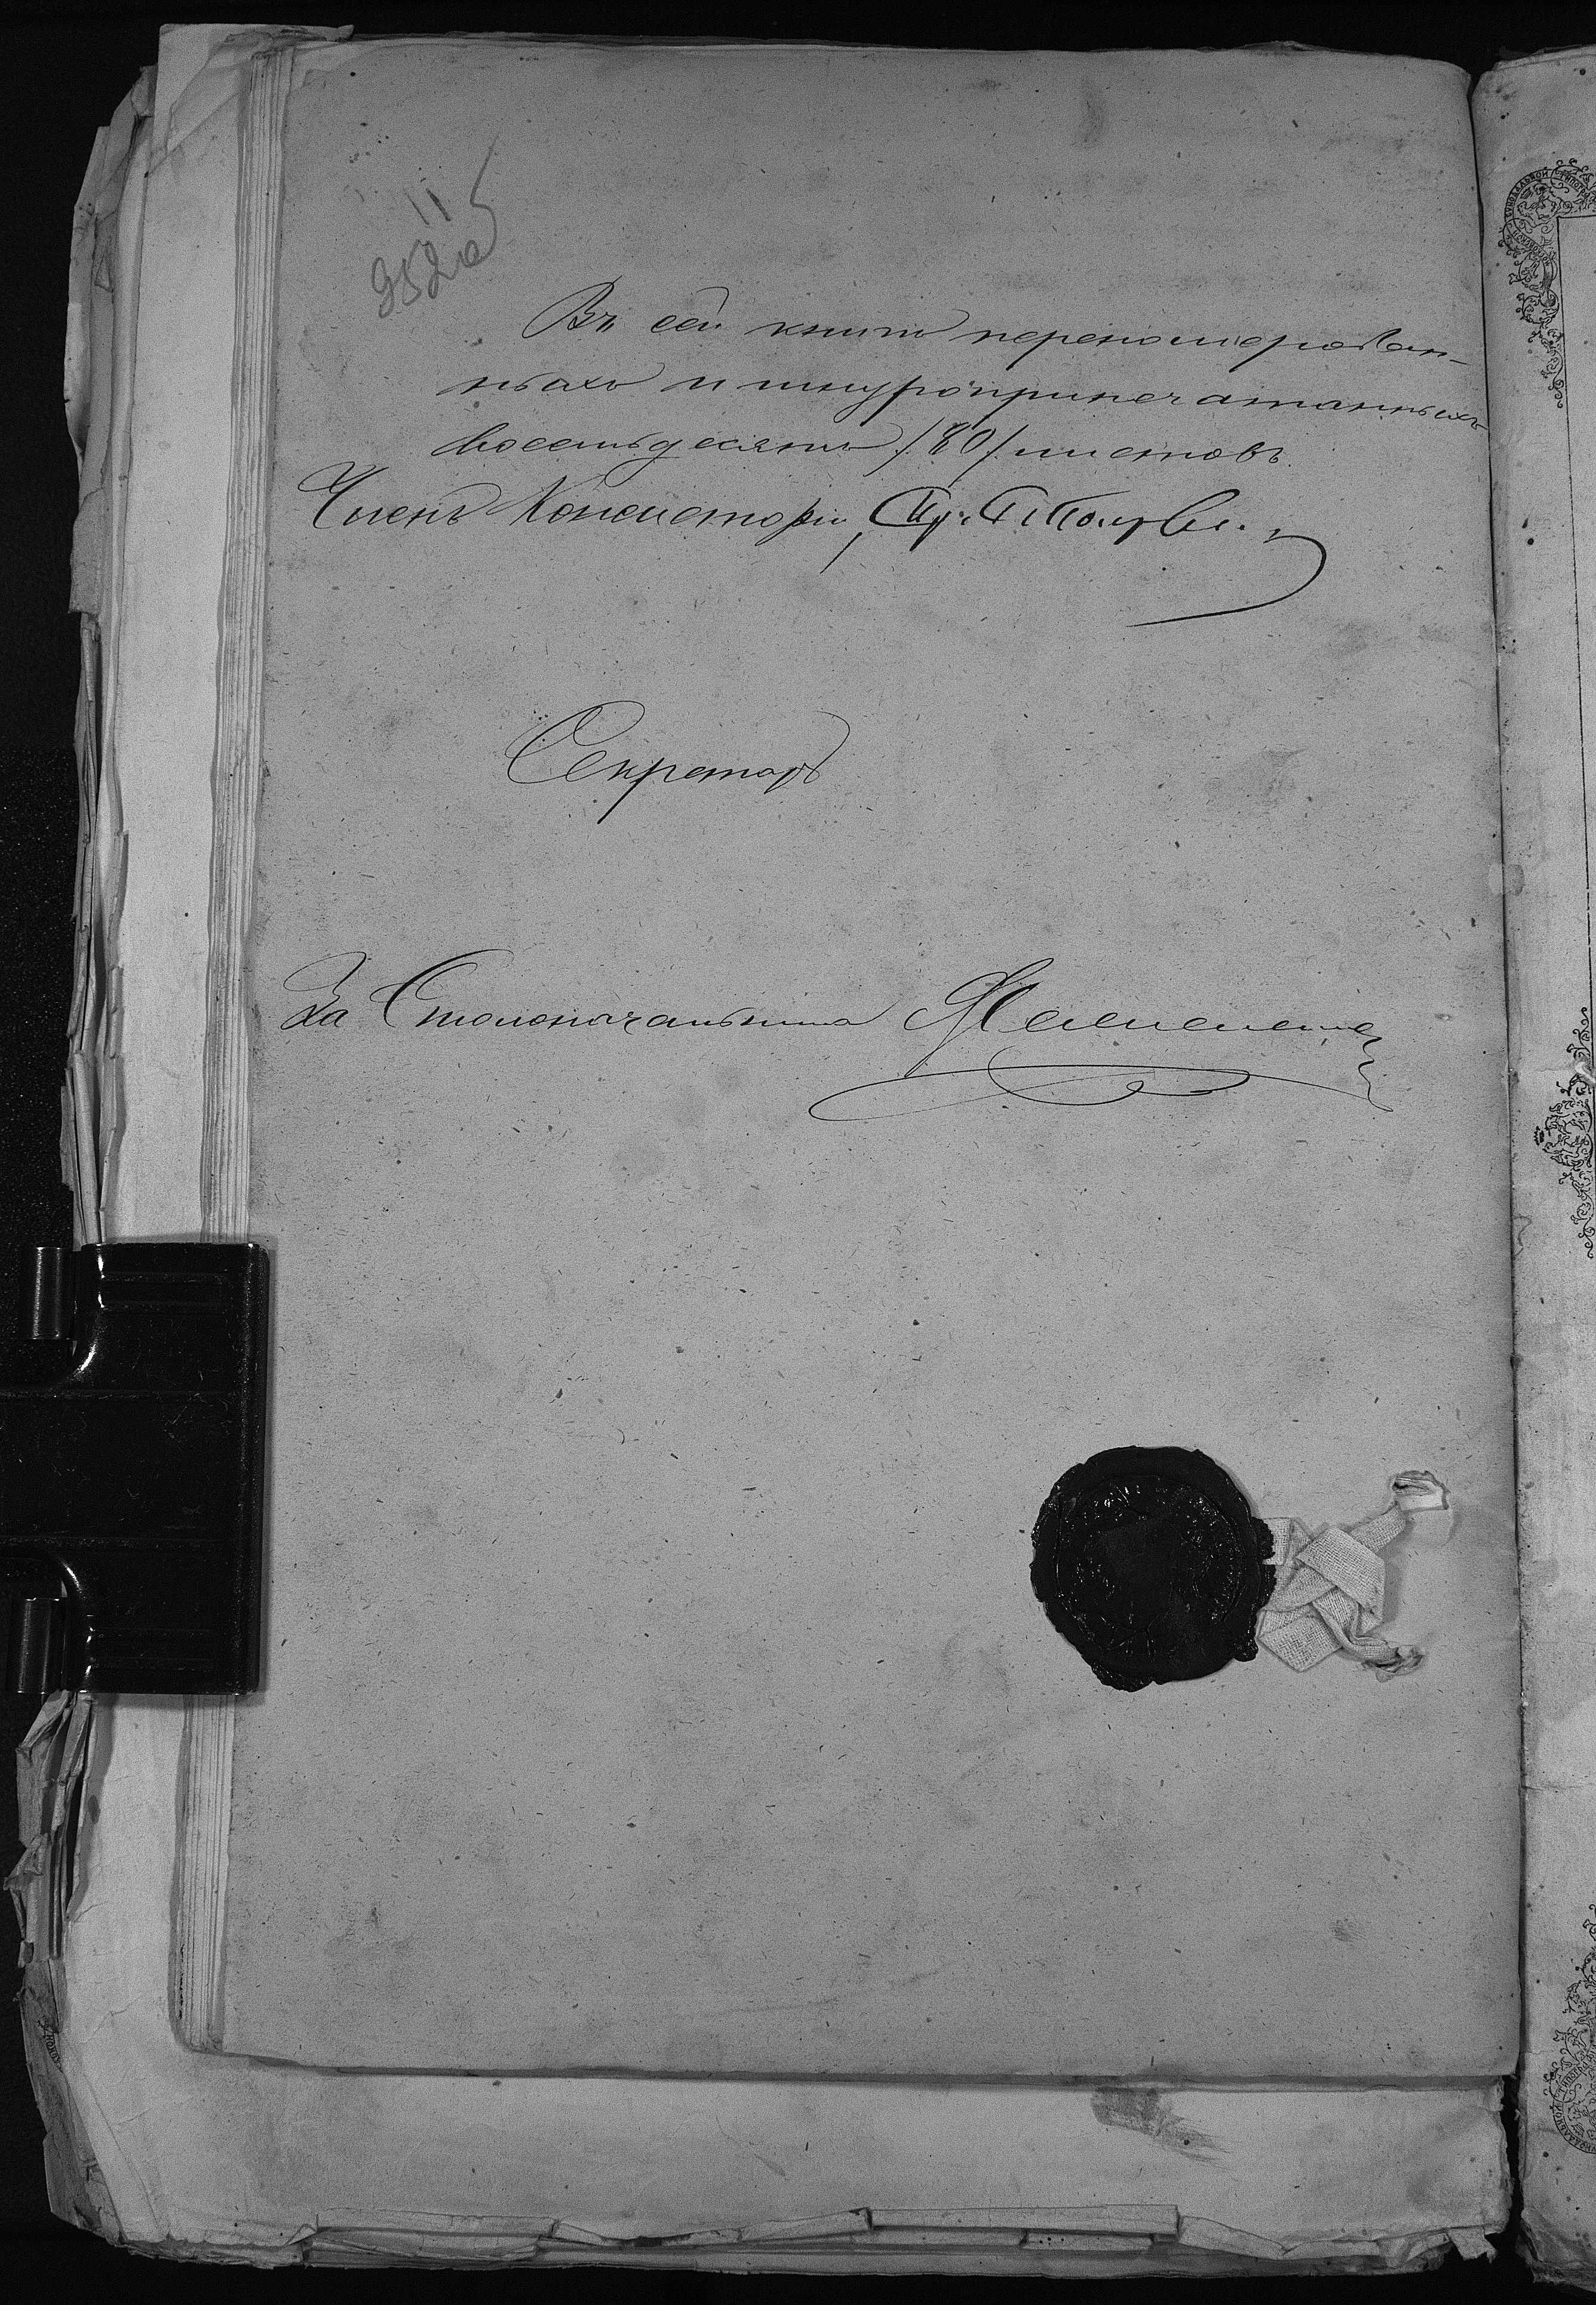 11
952об
Въ сей книгѣ перенумерован-
ныхъ и шнуроприпечатанныхъ
восемьдесятъ /80/ листовъ.
Членъ Консисторіи,
Секретарь
За Столоначальника